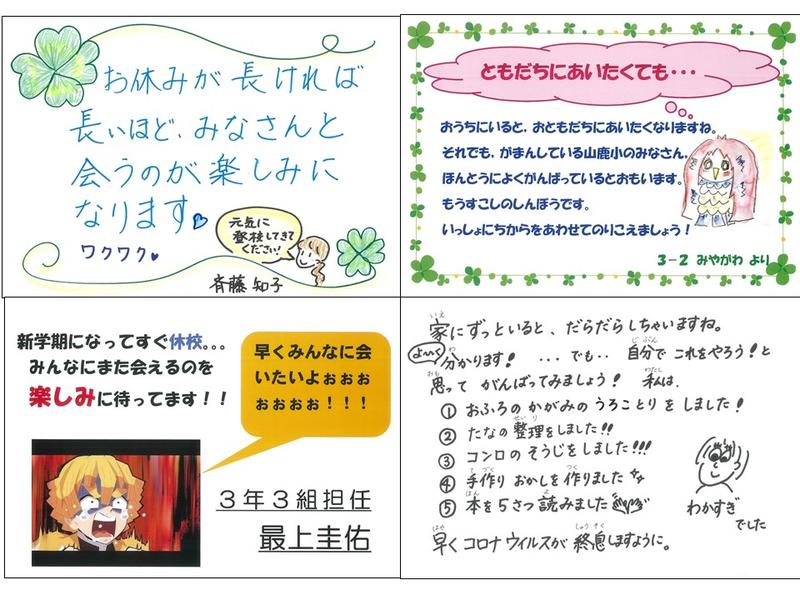 お休みが長ければ
長いほど、みなさんと
会うのが楽しみに
なります
ワクワク
元気に
登校してきて
ください!
斉藤 知子
ともだちにあいたくても・・・
おうちにいると、おともだちにあいたくなりますね。
それでも、がまんしている山鹿小のみなさん、
ほんとうによくがんばっているとおもいます。
もうすこしのしんぼうです。
いっしょにちからをあわせてのりこえましょう！
３－２ みやがわ より
新学期になってすぐ休校。。。
みんなにまた会えるのを
楽しみに待ってます！！
早くみんなに会
いたいよぉぉぉ
ぉぉぉぉ！！！
３年３組担任
最上圭佑
いえ
家にずっといると、だらだらしちゃいますね。
よーく
わ
分かります! ...でも.. 
じぶん
自分でこれをやろう!と
おも
思ってがんばってみましょう!
わたし
私は、
① おふろのかがみのうろことりをしました!
せいり
② たなの整理をしました!!
③ コンロのそうじをしました!!!
てづく
つく
④ 手作りおかしを作りました
ほん
よ
⑤ 本を5さつ読みました
わかすぎ
でした
はや
しゅうそく
早くコロナウイルスが終息しますように。